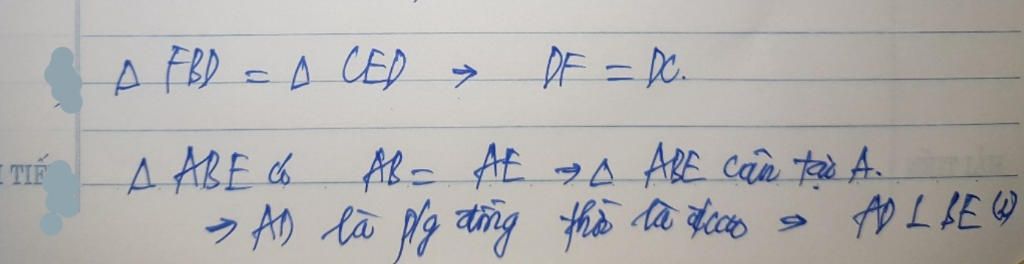 Δ FBD = Δ CED → DF = DC.
Δ ABE có AB = AE → Δ ABE cân tại A.
→ AD là p/g đồng thời là đ/cao → AD ⊥ BE (1)
TIẾ